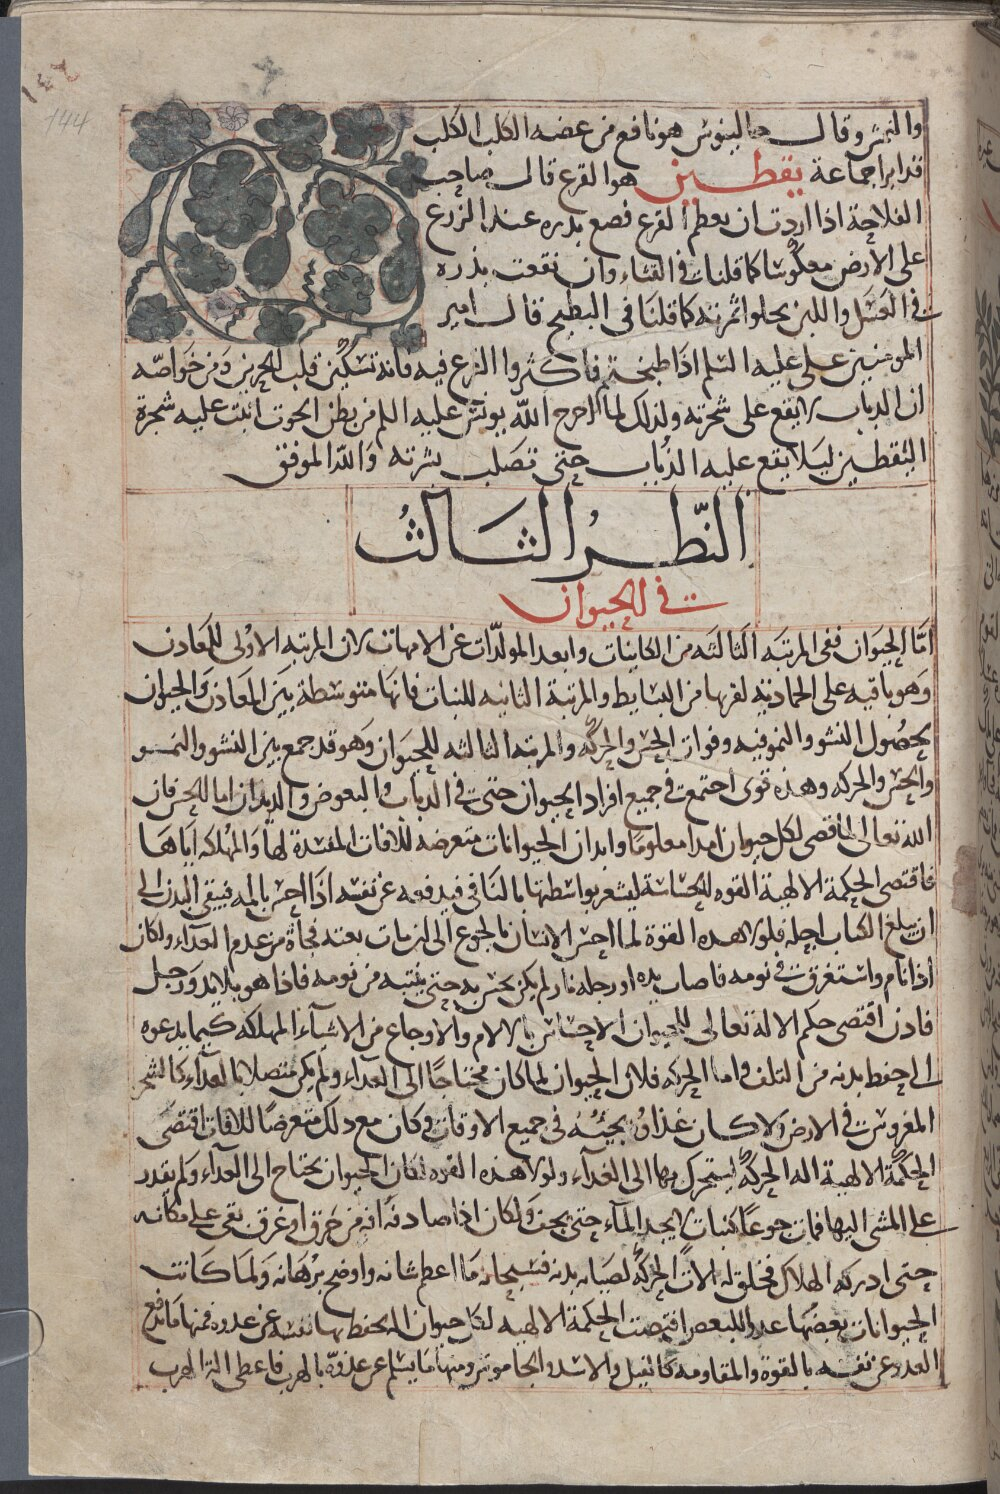 ١٤٤
144
والنهش وقال جالينوس هو نافع من عضه الكلب الكلب
قد ابرا جماعة يقطين هو القرع قال صاحب
الفلاحة اذا اردت ان يعظم القرع فضع بذره عند الزرع
على الارض معكوسا كما قلنا في القثاء وان نقعت بذره
في العسل واللبن يحلوا ثمرته كما قلنا في البطيخ قال امير
المومنين على عليه السلم اذا طبختم فاكثروا القرع فيه فانه تسكين قلب الحزين ومن خواصه
ان الذباب لا يقع على شجرته ولذلك لما اخرج الله يونس عليه السلم من بطن الحوت انبت عليه شجرة
اليقطين ليلا يقع عليه الذباب حتى تصلب بشرته والله الموفق
النظر الثالث
في الحيوان
اما الحيوان ففى المرتبه الثالثه من الكاينات وابعد المولدات عن الامهات لان المرتبه الاولى للمعادن
وهو باقيه على الجماديه لقربها من البسايط والمرتبة الثانيه للنبات فانها متوسطة بين المعادن والحيوان
بحصول النشو والنمو فيه وفوات الحس والحركه والمرتبه الثالثه للحيوان وهو قد جمع بين النشو والنمو
والحس والحركه وهذه قوى اجتمعت في جميع افراد الحيوان حتى في الذباب والبعوض والديدان اما الحس فان
الله تعالى لما قضى لكل حيوان امدا معلوما وابدان الحيوانات متعرضه للافات المفسدة لها والمهلكه اياها
فاقتضى الحكمة الالهية القوه الحساسة ليشعر بواسطتها بالمنافى فيدفعه عن نفسه اذا احس بالمه فيبقى البدن الى
ان يبلغ الكتاب اجله فلولا هذه القوة لما احس الانسان بالجوع الى ان مات بغته فجأة من عدم الغداء ولكان
اذا نام واستغرق في نومه فاصاب يده او رجله نار لم يكن يحس به حتى ينتبه من نومه فاذا هو بلا يد ورجل
فاذن اقتضى حكم الاله تعالى للحيوان الاحساس بالالام والاوجاع من الاشياء المهلكه كيما يدعوه
الى حفظ بدنه من التلف واما الحركه فلان الحيوان لما كان محتاجا الى الغداء ولم يكن متصلا بالغداء كالشجر
المغروس في الارض ولا كان غذاؤه يجيئه في جميع الاوقات وكان مع ذلك متعرضا للافات اقتضى
الحكمة الالهية اله الحركه ليتحرك بها الى الغداء ولولا هذه القوه لكان الحيوان يحتاج الى الغداء ولم يقدر
على المشى اليها فمات جوعا كنبات لا يجد الماء حتى يجف ولكان اذا صادفه افه من حرق او غرق بقى على مكانه
حتى ادركه الهلاك فخلق له الات الحركه لصيانه بدنه فسبحانه ما اعظم شانه واوضح برهانه ولما كانت
الحيوانات بعضها عدوا للبعض اقتضت الحكمة الالهيه لكل حيوان اله يحفظ بها نفسه عن عدوه فمنها ما يدفع
العدو عن نفسه بالقوة والمقاومه كالفيل والاسد والجاموس ومنها ما يسلم عن عدوه بالهرب فاعطى اله الهرب